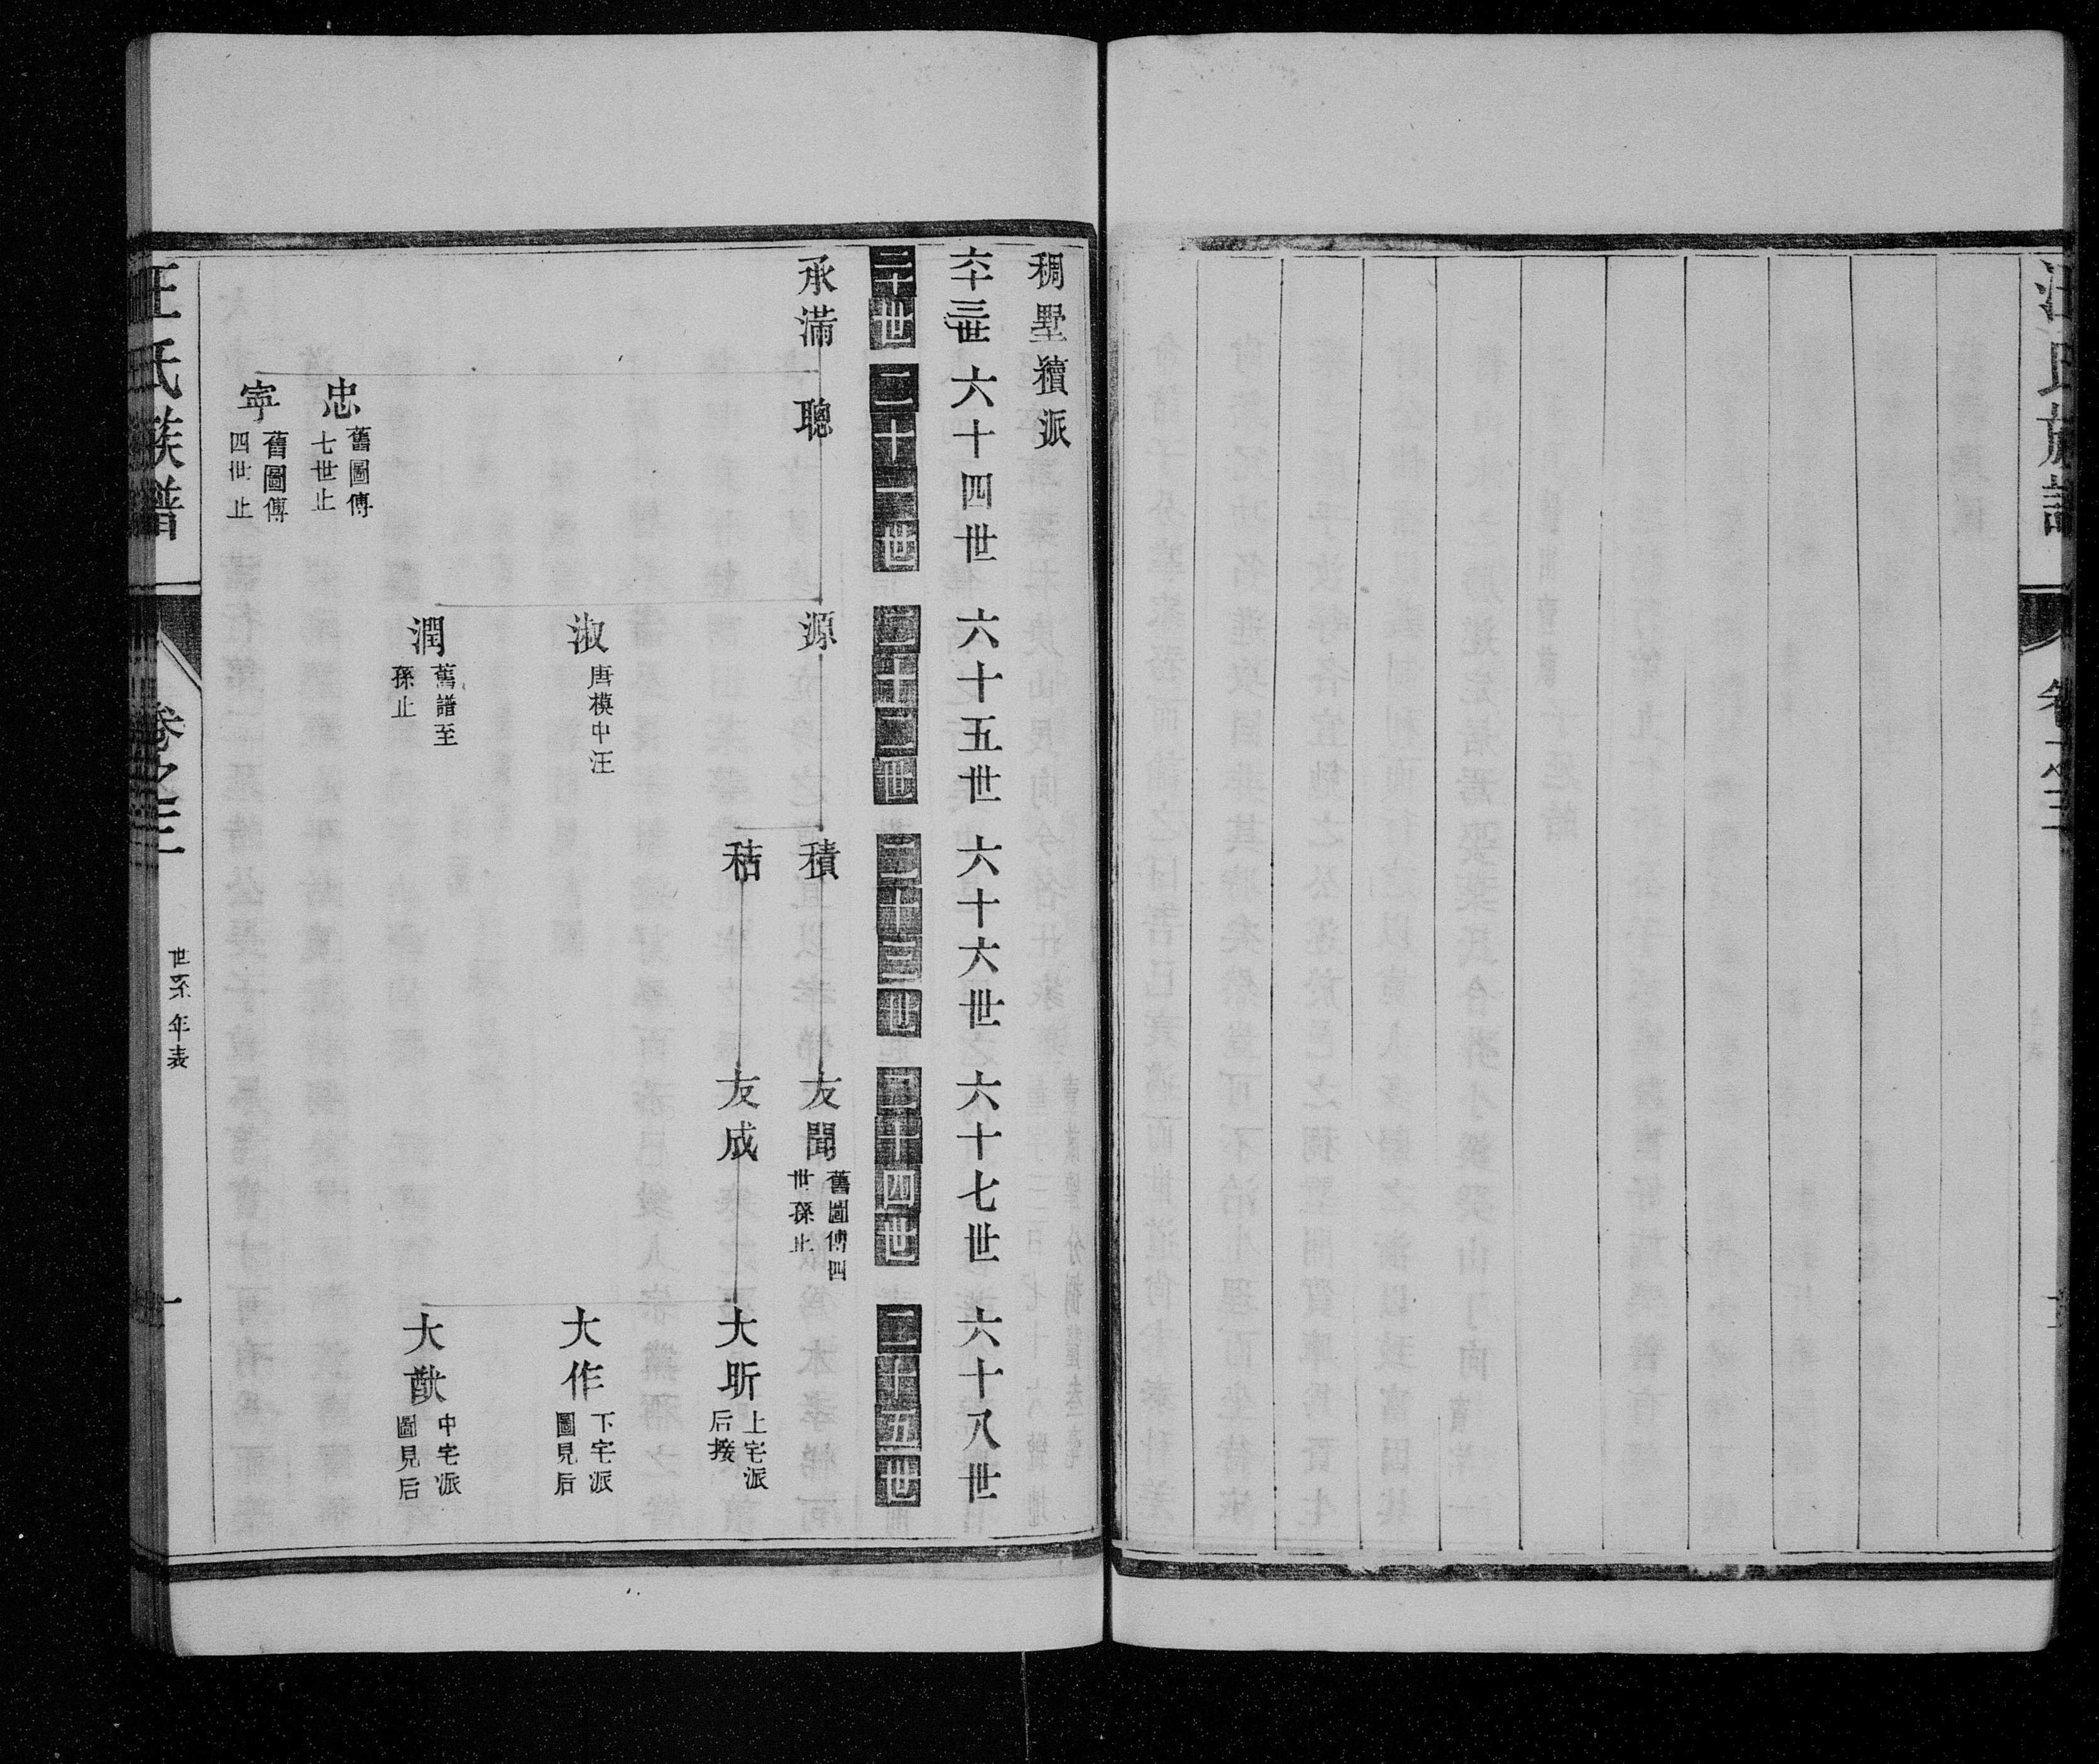 汪氏族譜
稠墅𧸖派
六十三世
六十四世
六十五世
六十六世
六十七世
六十八世
二十世
二十一世
二十二世
二十三世
二十四世
二十五世
承滿
聰
源
積
友聞
舊圖傳四
世孫止
秸
友成
大昕
上宅派
后援
淑
唐模中汪
大作
下宅派
圖見后
潤
舊譜至
孫止
大猷
中宅派
圖見后
忠
舊圖傳
七世止
寧
舊圖傳
四世止
汪氏族譜
卷之三
世系年表
一